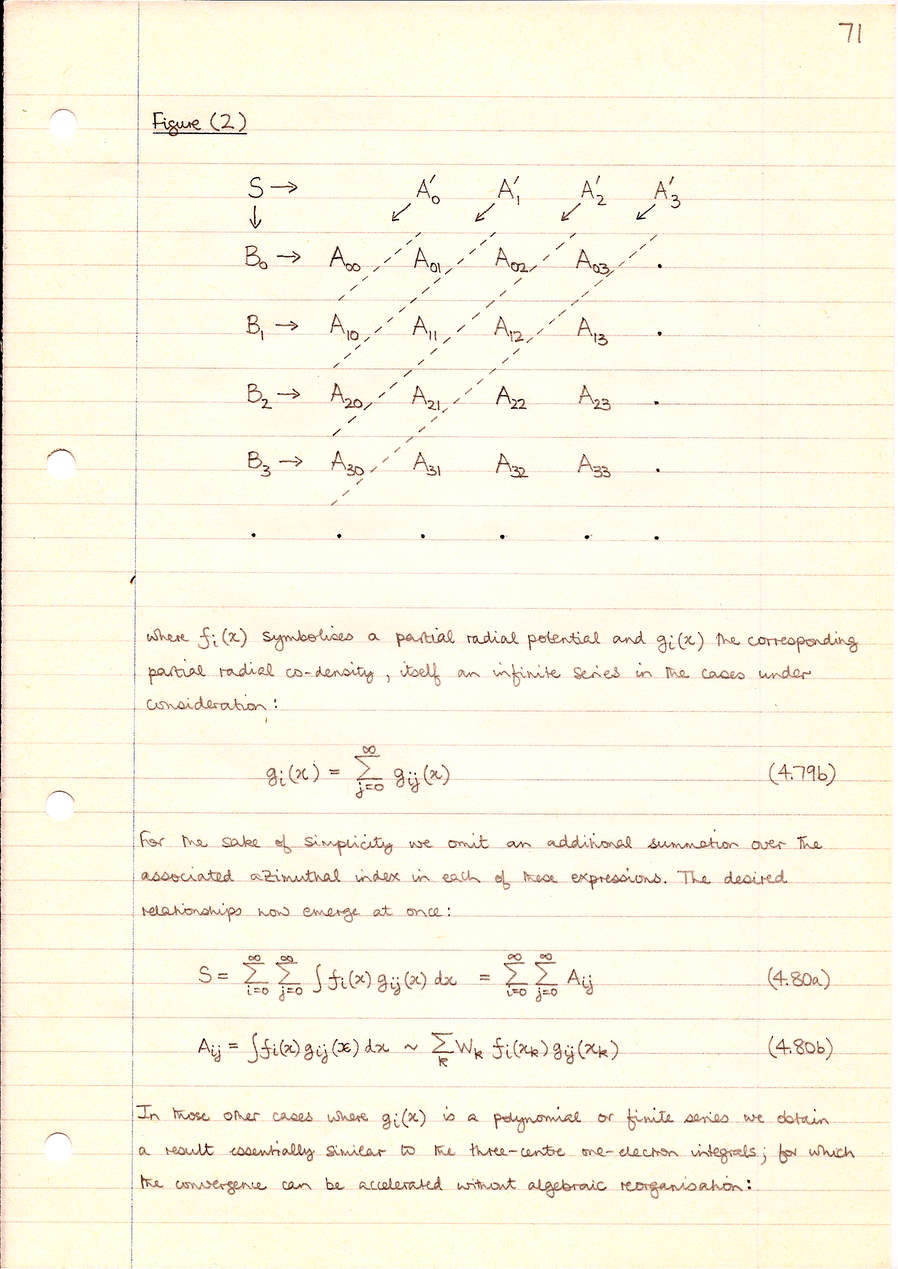 71
Figure (2)
S → A′₀ A′₁ A′₂ A′₃
↓ ↙ ↙ ↙ ↙
B₀ → A₀₀ A₀₁ A₀₂ A₀₃ .
B₁ → A₁₀ A₁₁ A₁₂ A₁₃ .
B₂ → A₂₀ A₂₁ A₂₂ A₂₃ .
B₃ → A₃₀ A₃₁ A₃₂ A₃₃ .
. . . . . .
where fᵢ(x) symbolises a partial radial potential and gᵢ(x) the corresponding
partial radial co-density, itself an infinite series in the cases under
consideration:
gᵢ(x) = ∑_{j=0}^{∞} gᵢⱼ(x) (4.79b)
For the sake of simplicity we omit an additional summation over the
associated azimuthal index in each of these expressions. The desired
relationships now emerge at once:
S = ∑_{i=0}^{∞} ∑_{j=0}^{∞} ∫ fᵢ(x) gᵢⱼ(x) dx = ∑_{i=0}^{∞} ∑_{j=0}^{∞} Aᵢⱼ (4.80a)
Aᵢⱼ = ∫ fᵢ(x) gᵢⱼ(x) dx ~ ∑_{k} Wₖ fᵢ(xₖ) gᵢⱼ(xₖ) (4.80b)
In those other cases where gᵢ(x) is a polynomial or finite series we obtain
a result essentially similar to the three-centre one-electron integrals; for which
the convergence can be accelerated without algebraic reorganisation: